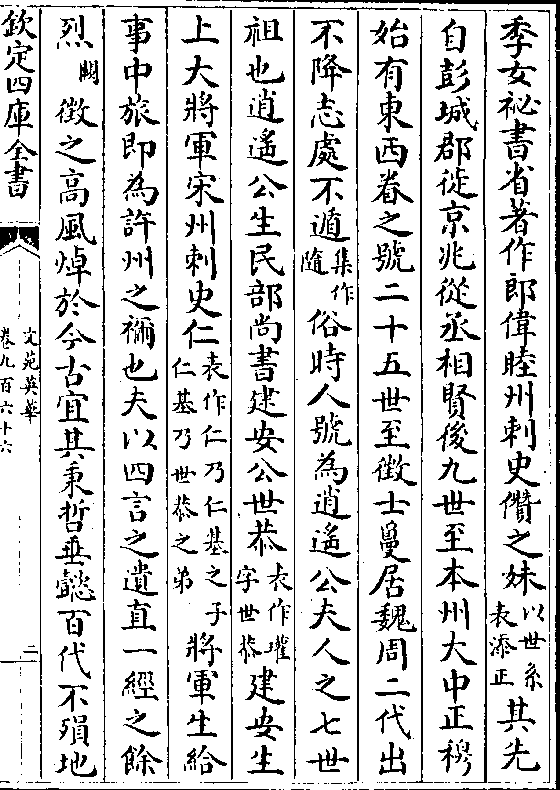 季女祕書省著作郎偉睦州刺史儹之妹以世系表添正其先
自彭城郡徙京兆從丞相賢後九世至本州大中正穆
始有東西眷之號二十五世至徵士敻居魏周二代出
不降志處不遁集作隨俗時人號為逍遙公夫人之七世
祖也逍遙公生民部尚書建安公世恭表作瓘字世恭建安生
上大將軍宋州刺史仁表作仁乃仁基之子仁基乃世恭之弟將軍生給
事中旅即為許州之禰也夫以四言之遺直一經之餘
烈闕徵之高風焯於今古宜其秉哲垂懿百代不殞地
欽定四庫全書
文苑英華
卷九百六十六
二